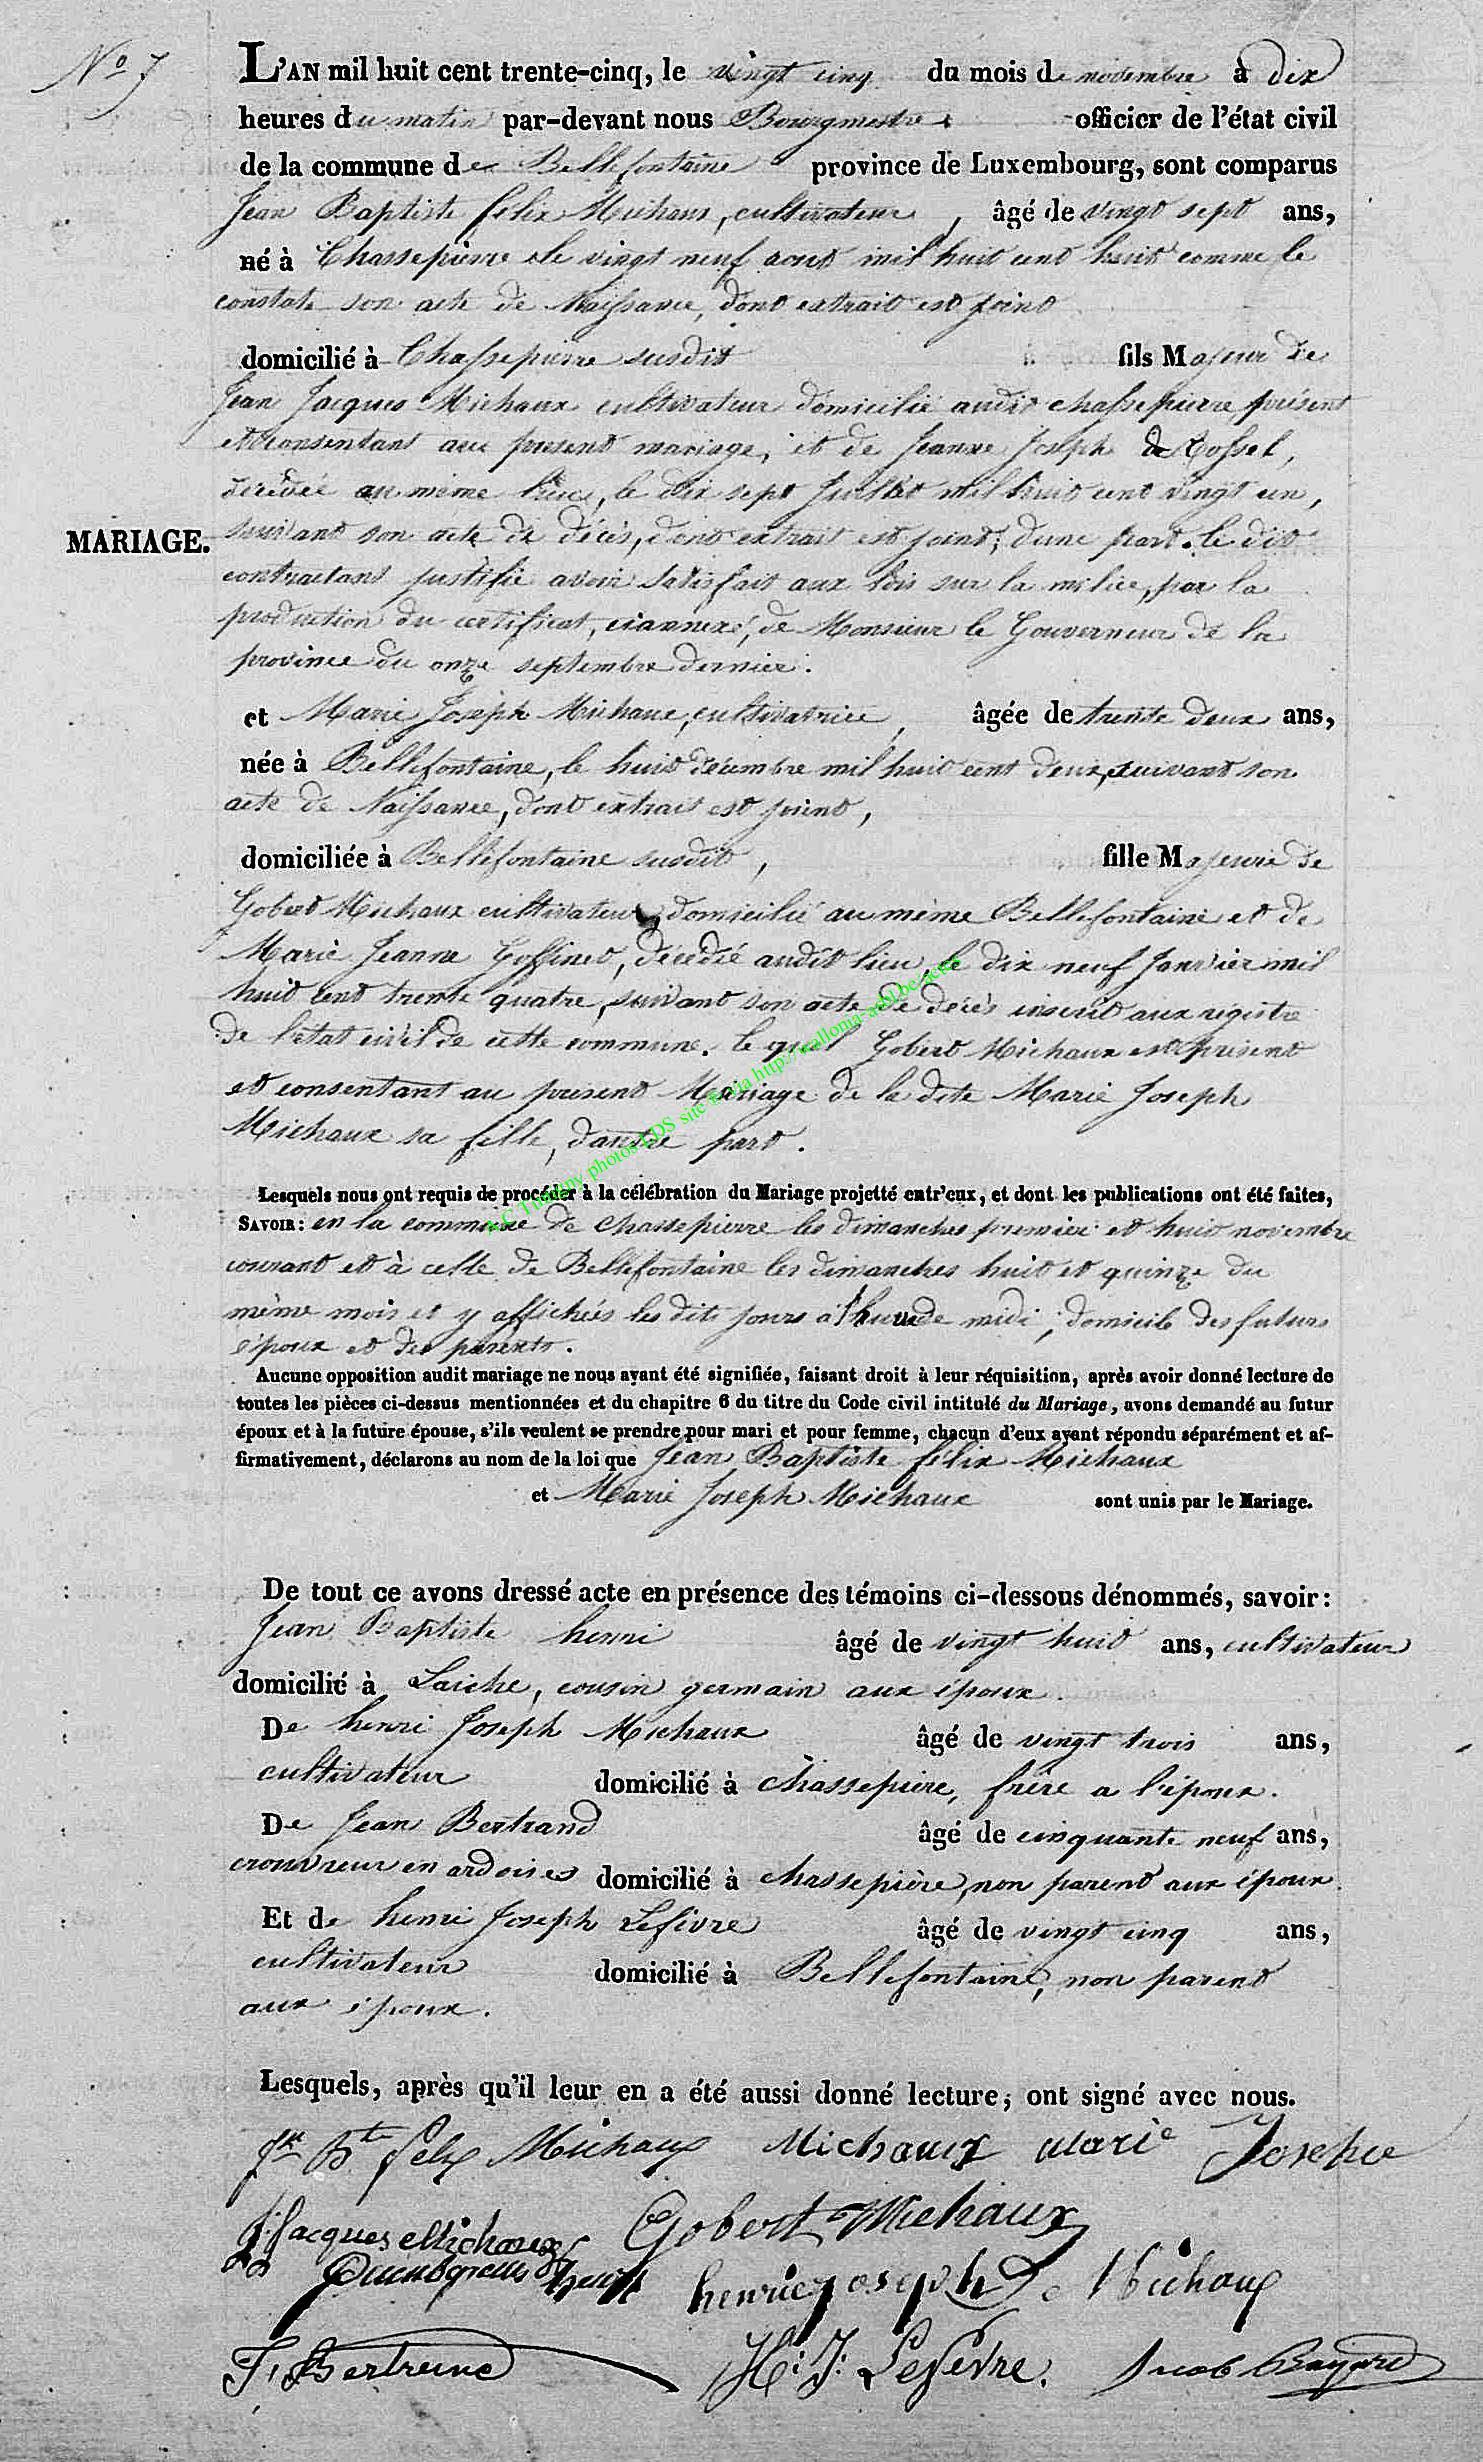 N° 7
L'AN mil huit cent trente-cinq, le vingt cinq du mois de novembre à dix
heures du matin par-devant nous Bourgmestre officier de l'état civil
de la commune de Bellefontaine province de Luxembourg, sont comparus
Jean Baptiste félix Michaux, cultivateur, âgé de vingt sept ans,
né à Chassepierre le vingt neuf aout mil huit cent huit comme le
constate son acte de Naissance, dont extrait est joint
domicilié à Chassepierre susdit fils Majeur de
Jean Jacques Michaux cultivateur domicilié audit chassepierre, présent
et consentant au present mariage, et de Jeanne Joseph de Rossel,
décédée au même lieu, le dix sept Juillet mil huit cent vingt un,
MARIAGE.
suivant son acte de décès, dont extrait est joint, d'une part. le dit
contractant justifie avoir satisfait aux lois sur la milice, par la
production du certificat, ciannexé, de Monsieur le Gouverneur de la
province du onze septembre dernier.
et Marie Joseph Michaux, cultivatrice, âgée de trente deux ans,
née à Bellefontaine, le huit décembre mil huit cent deux, suivant son
acte de Naissance, dont extrait est joint,
domiciliée à Bellefontaine susdit, fille Majeure de
Gobert Michaux cultivateur, domicilié au même Bellefontaine et de
Marie Jeanne Goffinet, décédée audit lieu, le dix neuf Janvier mil
huit cent trente quatre, suivant son acte de décès inscrit aux registre
de l'état civil de cette commune. le quel Gobert Michaux est présent
et consentant au présent Mariage de la dite Marie Joseph
Michaux sa fille, d'autre part.
A.C Tintigny photos LDS site © via http://wallonia-asbl.be/actes
Lesquels nous ont requis de procéder à la célébration du Mariage projetté entr'eux, et dont les publications ont été faites,
SAVOIR: en la commune de Chassepierre les dimanches premier et huit novembre
courant et à celle de Bellefontaine les dimanches huit et quinze du
même mois et y affichées les dits jours à l'heure de midi, domicile des futurs
époux et des parents.
Aucune opposition audit mariage ne nous ayant été signifiée, faisant droit à leur réquisition, après avoir donné lecture de
toutes les pièces ci-dessus mentionnées et du chapitre 6 du titre du Code civil intitulé du Mariage, avons demandé au futur
époux et à la future épouse, s'ils veulent se prendre pour mari et pour femme, chacun d'eux ayant répondu séparément et af-
firmativement, déclarons au nom de la loi que Jean Baptiste félix Michaux
et Marie Joseph Michaux sont unis par le Mariage.
De tout ce avons dressé acte en présence des témoins ci-dessous dénommés, savoir:
Jean Baptiste henri âgé de vingt huit ans, cultivateur
domicilié à Laiche, cousin germain aux époux.
De henri Joseph Michaux âgé de vingt trois ans,
cultivateur domicilié à chassepierre, frère a l'époux.
De Jean Bertrand âgé de cinquante neuf ans,
crouvreur en ardoises domicilié à chassepière, non parent aux époux.
Et de henri Joseph Lefèvre âgé de vingt cinq ans,
cultivateur domicilié à Bellefontaine, non parent
aux époux.
Lesquels, après qu'il leur en a été aussi donné lecture, ont signé avec nous.
Jn Bte felix Michaux Michaux Marie Josephe
J. Jacques Michaux Gobert Michaux
henri joseph Michaux
J. Bertrand H: J: Lefevre.